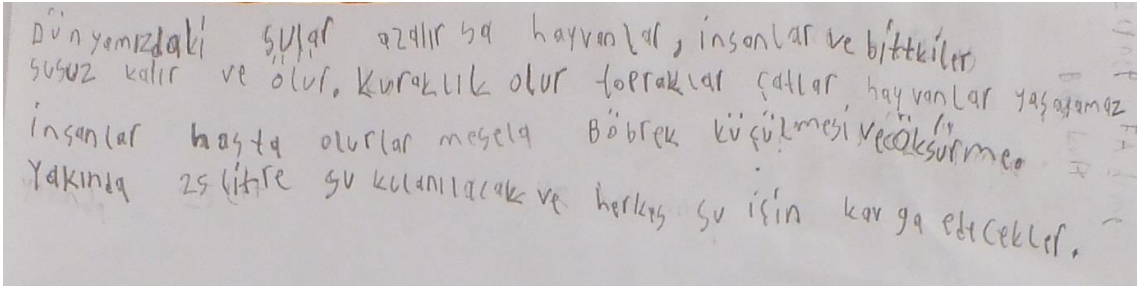 Dünyamızdaki sular azalır sa hayvanlar, insanlar ve bittkiler
susuz kalır ve ölür. Kuraklık olur topraklar çatlar hayvanlar yaşayamaz
insanlar hasta olurlar mesela Böbrek küçülmesi ve öksürme.
Yakında 25 litre su kulanılacak ve herkes su için kavga edecekler.